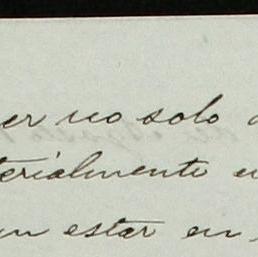 er no solo
terialmente
un estar en